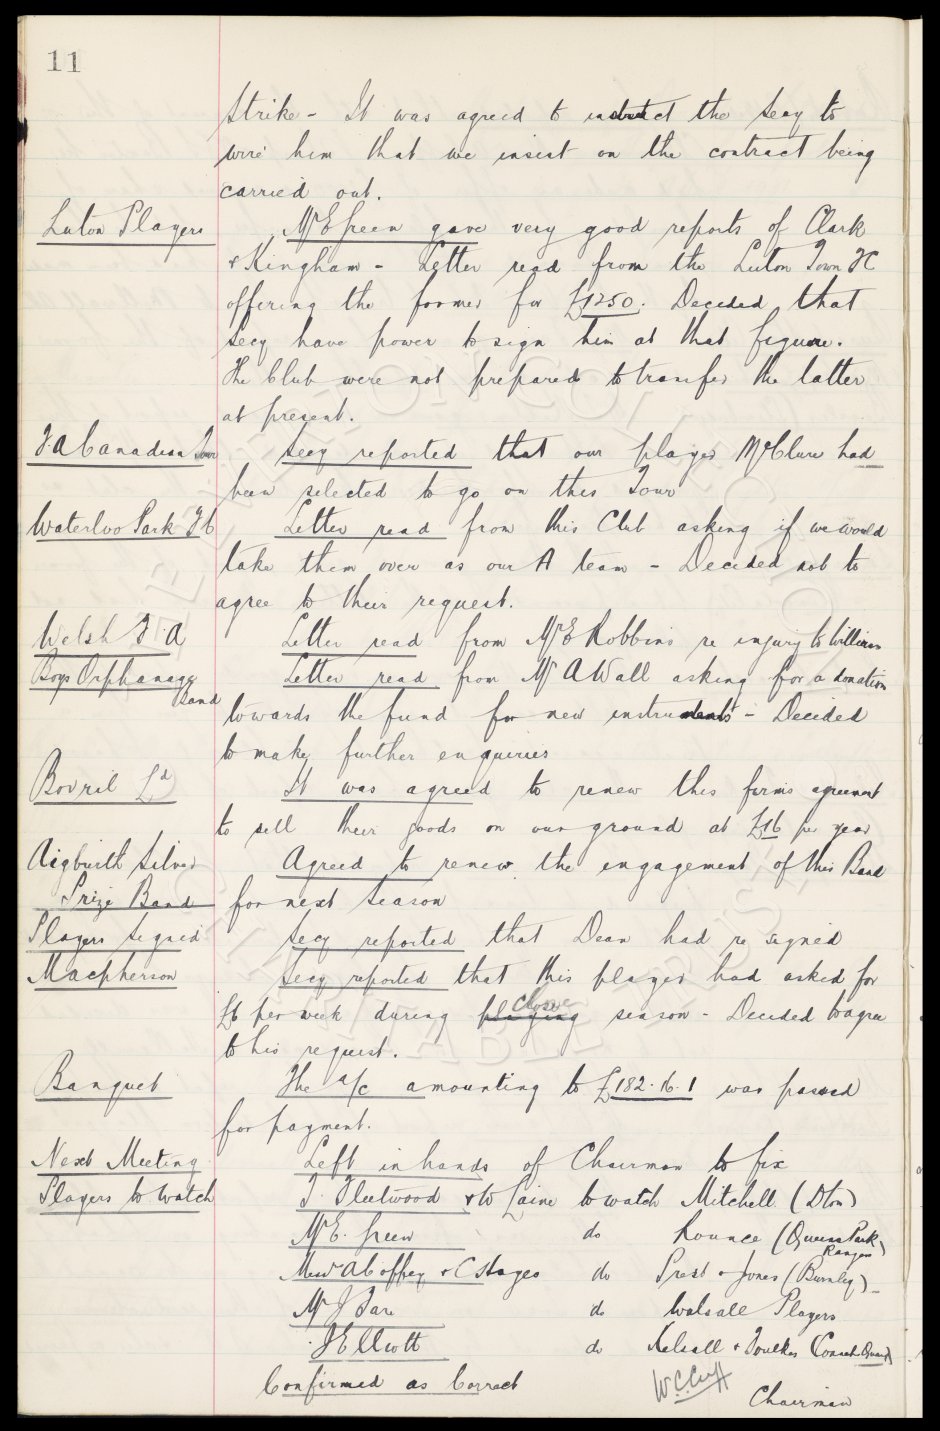 11
Strike - It was agreed to instruct the Secy to
wire him that we insist on the contract being
carried out.
Luton Players Mr E Green gave very good reports of Clark
& Kingham - Letter read from the Luton Town FC
offering the former for £1250. Decided that
Secy have power to sign him at that figure.
The Club were not prepared to transfer the latter
at present.
F.A Canadian Tour Secy reported that our player McClure had
been selected to go on this Tour
Waterloo Park F C Letter read from this Club asking if we would
take them over as our A team - Decided not to
agree to their request.
Welsh F.A Letter read from Mr E Robbins re injury to Williams
Boys Orphanage Band Letter read from Mr A Wall asking for a donation
towards the fund for new instruments - Decided
to make further enquiries
Bovril Ld It was agreed to renew this firms agreement
to sell their goods on our ground at £16 per year
Aigburth Silver Agreed to renew the engagement of this Band
Prize Band for next season
Players Signed Secy reported that Dean had re signed
Macpherson Secy reported that this player had asked for
£6 per week during playing close season - Decided to agree
to his request.
Banquet The a/c amounting to £182.16.1 was passed
for payment.
Next Meeting Left in hands of Chairman to fix
Players to Watch T. Fleetwood & W Caine to watch Mitchell (Dton)
Mr E. Green do Rounce (Queens Park Rangers)
Messrs A Coffey & C Hayes do Prest & Jones (Burnley)
Mr J Fare do Walsall Players
J Elliott do Kelsall & Foulkes (Connahs Quay)
Confirmed as Correct W.C. Cuff
Chairman